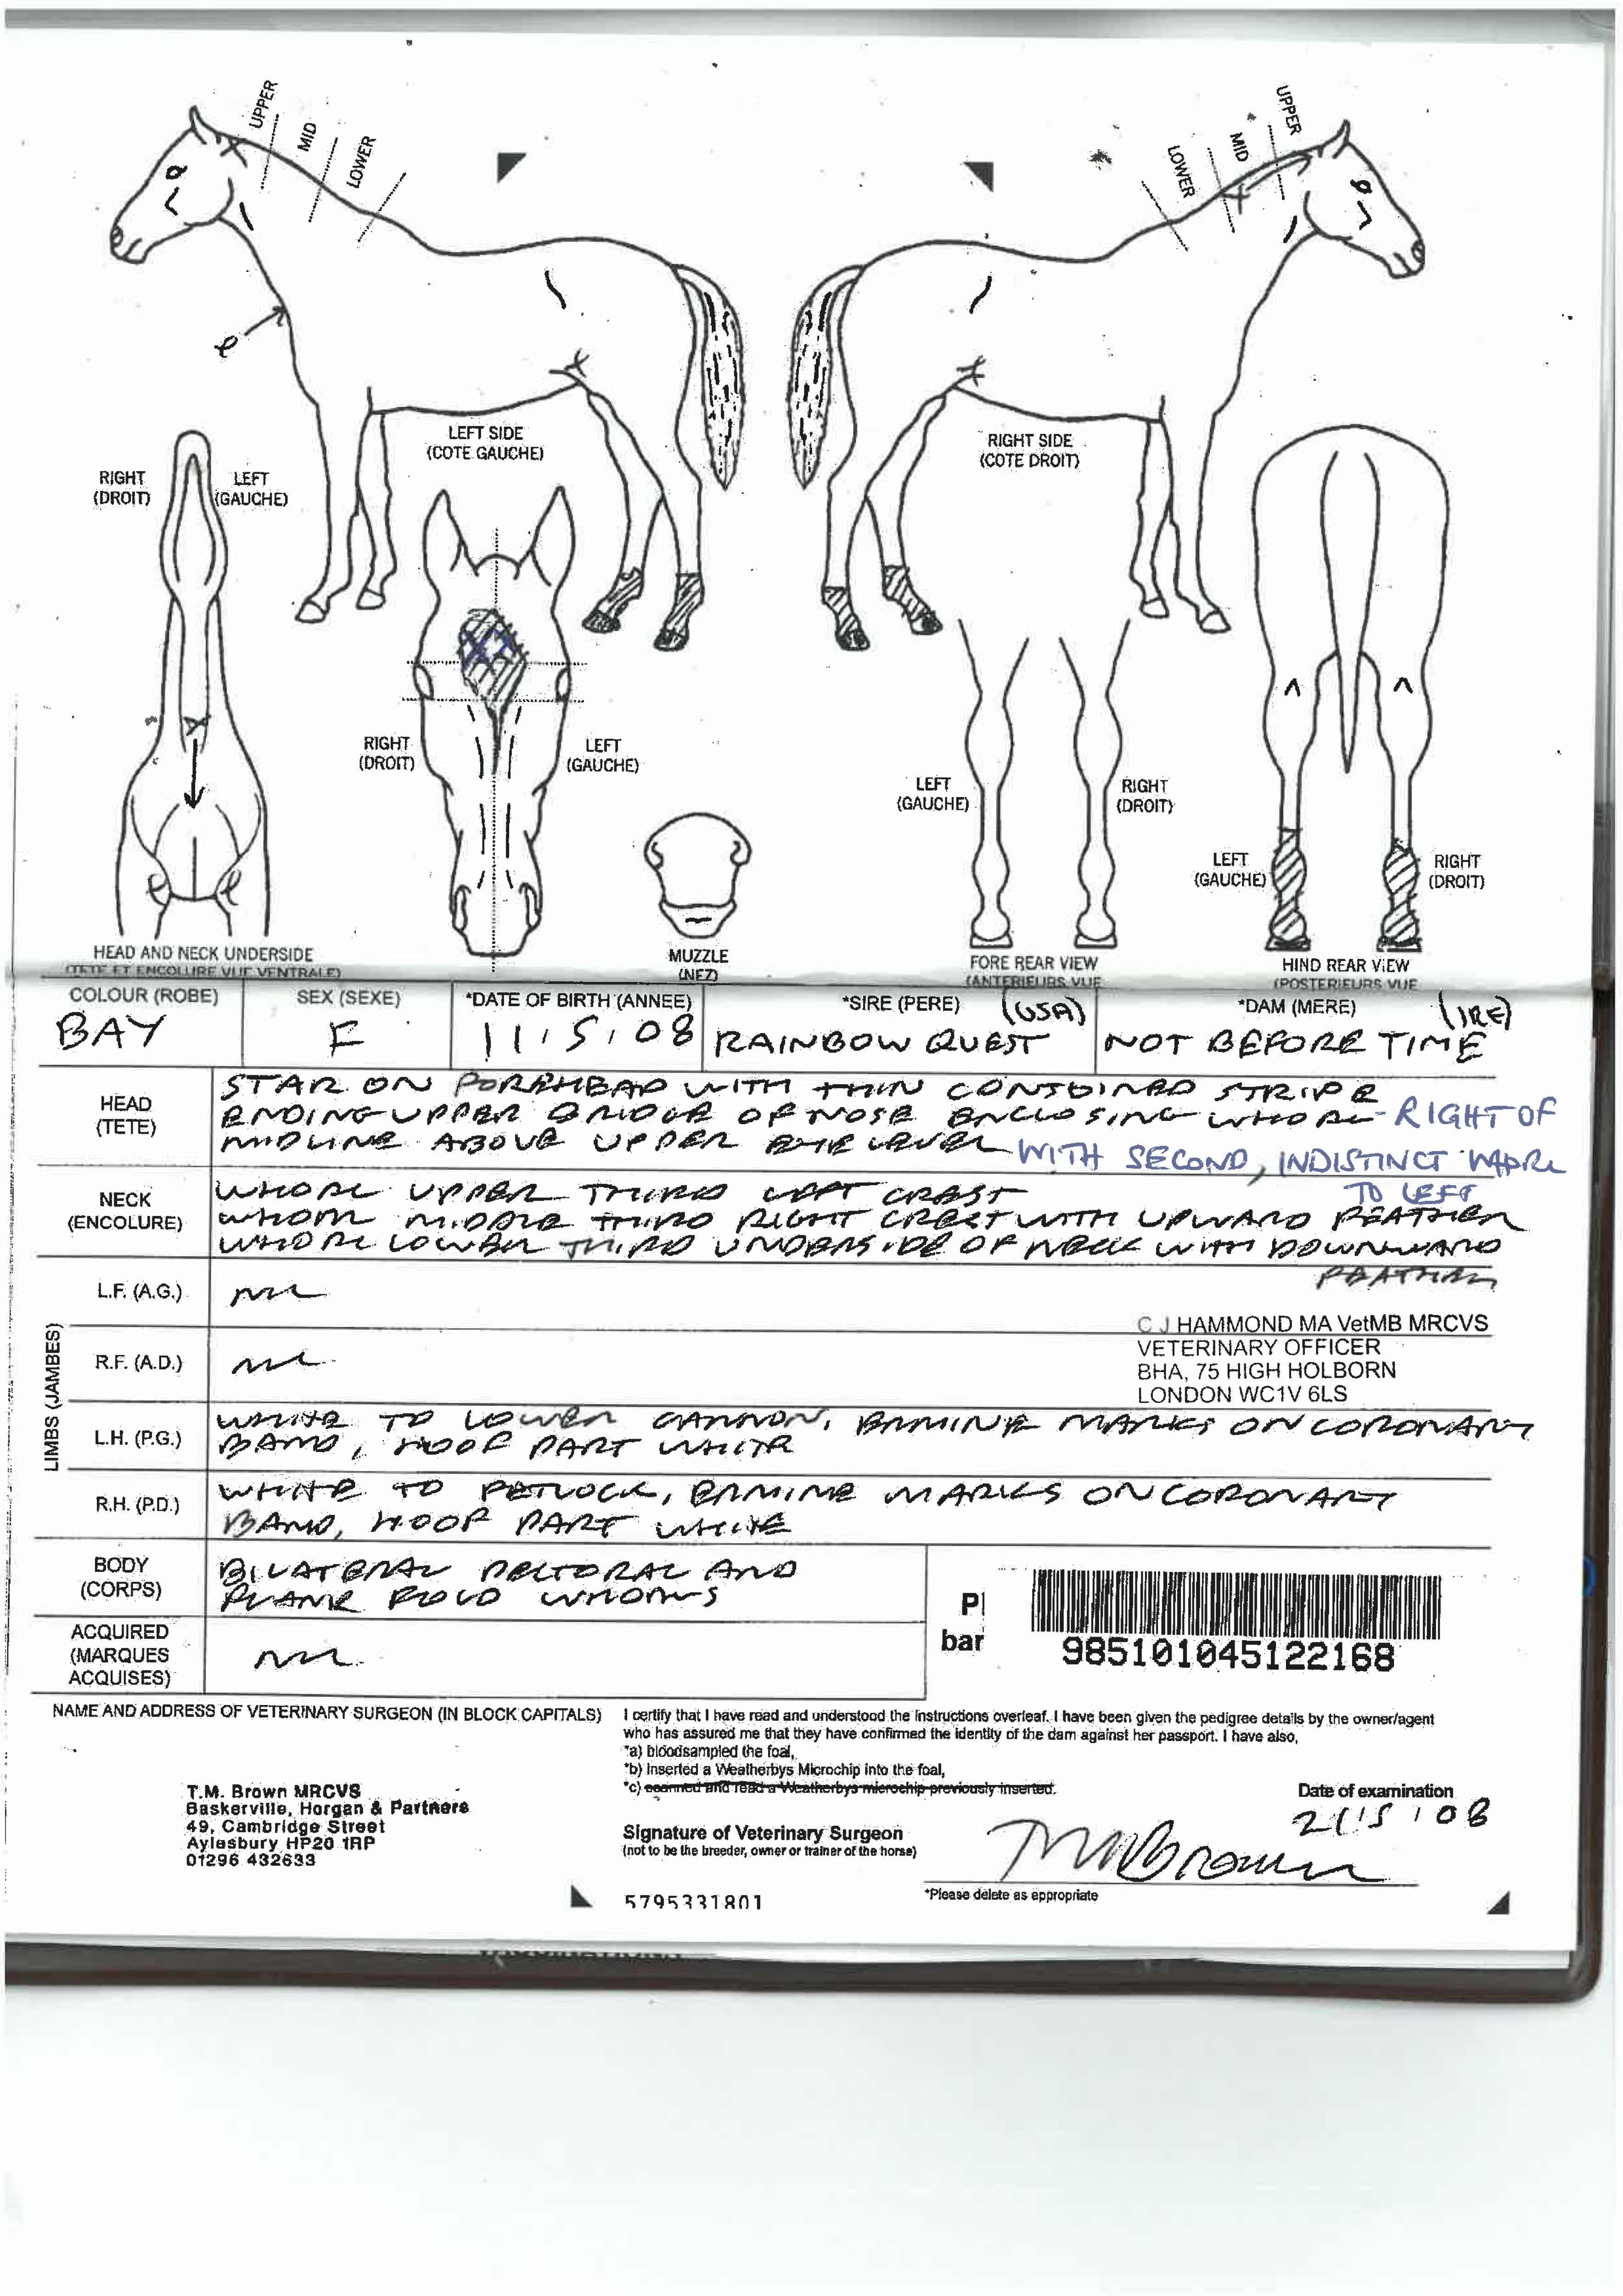 UPPER
MID
LOWER
UPPER
MID
LOWER
LEFT SIDE
(COTE GAUCHE)
RIGHT SIDE
(COTE DROIT)
RIGHT
(DROIT)
LEFT
(GAUCHE)
RIGHT
(DROIT)
LEFT
(GAUCHE)
LEFT
(GAUCHE)
RIGHT
(DROIT)
LEFT
(GAUCHE)
RIGHT
(DROIT)
HEAD AND NECK UNDERSIDE
(TETE ET ENCOLURE VUE VENTRALE)
MUZZLE
(NEZ)
FORE REAR VIEW
(ANTERIEURS VUE
HIND REAR VIEW
(POSTERIEURS VUE
COLOUR (ROBE) SEX (SEXE) *DATE OF BIRTH (ANNEE) *SIRE (PERE) (USA) *DAM (MERE) (IRE)
BAY F 11.5.08 RAINBOW QUEST NOT BEFORE TIME
HEAD
(TETE)
STAR ON FOREHEAD WITH THIN CONJOINED STRIPE
ENDING UPPER BRIDGE OF NOSE ENCLOSING WHORL - RIGHT OF
MIDLINE ABOVE UPPER EYE LEVEL WITH SECOND, INDISTINCT WHORL
TO LEFT
NECK
(ENCOLURE)
WHORL UPPER THIRD LEFT CREST
WHORL MIDDLE THIRD RIGHT CREST WITH UPWARD FEATHER
WHORL LOWER THIRD UNDERSIDE OF NECK WITH DOWNWARD
FEATHER
LIMBS (JAMBES)
L.F. (A.G.) NIL
R.F. (A.D.) NIL
C J HAMMOND MA VetMB MRCVS
VETERINARY OFFICER
BHA, 75 HIGH HOLBORN
LONDON WC1V 6LS
L.H. (P.G.) WHITE TO LOWER CANNON, ERMINE MARKS ON CORONARY
BAND, HOOF PART WHITE
R.H. (P.D.) WHITE TO FETLOCK, ERMINE MARKS ON CORONARY
BAND, HOOF PART WHITE
BODY
(CORPS)
BILATERAL PECTORAL AND
FLANK FOLD WHORLS
ACQUIRED
(MARQUES
ACQUISES)
NIL
Pl
bar
985101045122168
NAME AND ADDRESS OF VETERINARY SURGEON (IN BLOCK CAPITALS)
T.M. Brown MRCVS
Baskerville, Horgan & Partners
49, Cambridge Street
Aylesbury HP20 1RP
01296 432633
I certify that I have read and understood the instructions overleaf. I have been given the pedigree details by the owner/agent
who has assured me that they have confirmed the identity of the dam against her passport. I have also,
*a) bloodsampled the foal,
*b) inserted a Weatherbys Microchip into the foal,
*c) scanned and read a Weatherbys microchip previously inserted.
Date of examination
21.5.08
Signature of Veterinary Surgeon
(not to be the breeder, owner or trainer of the horse)
TM Brown
*Please delete as appropriate
5795331801